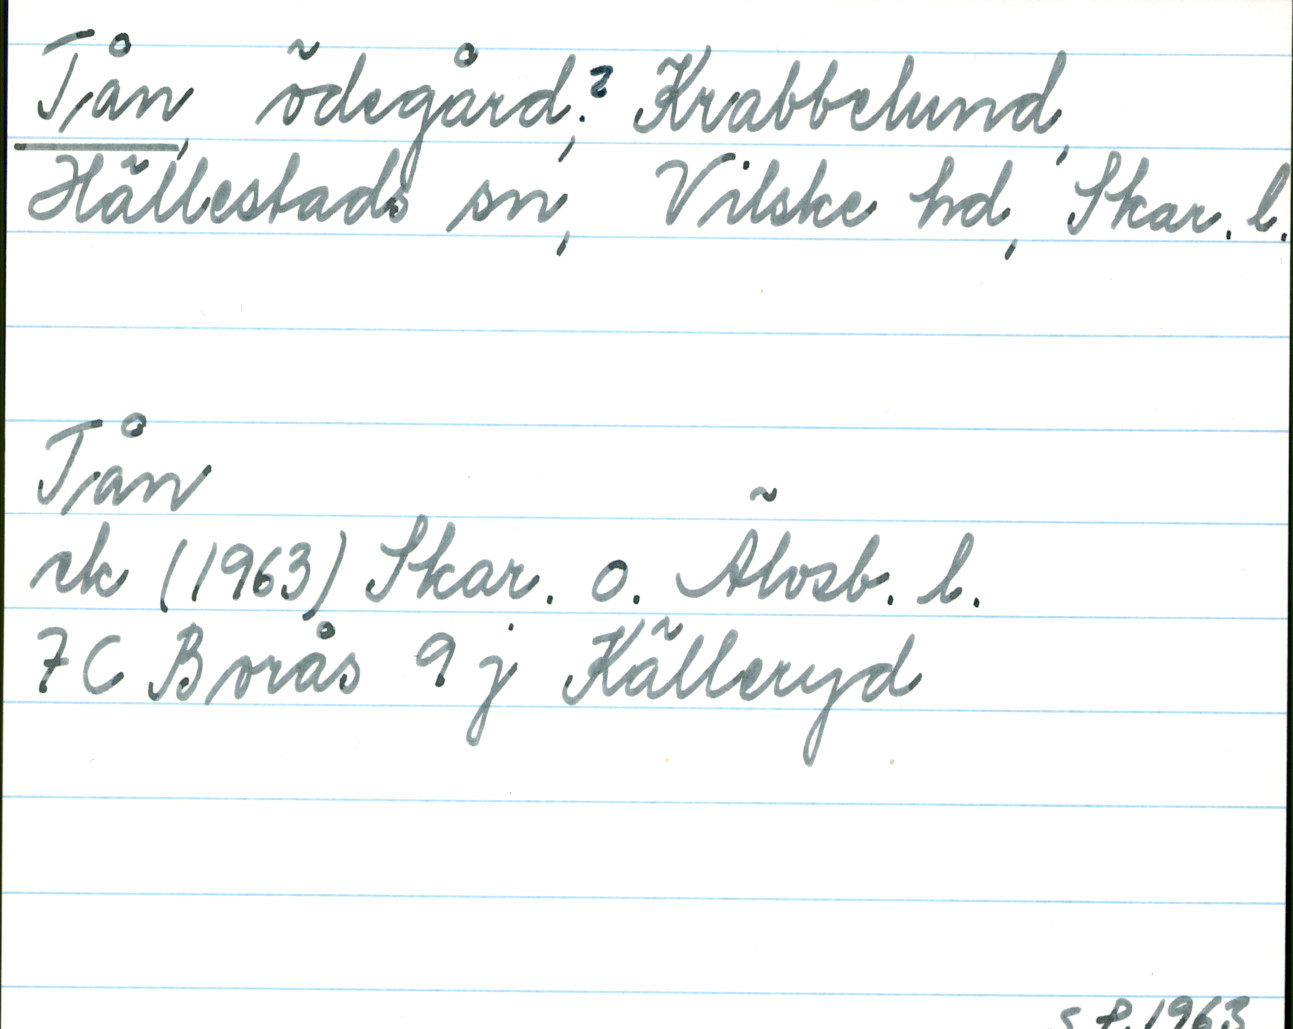 Tån, ödegård,? Krabbelund,
Hällestads sn, Vilske hd, Skar. l.
Tån
ek (1963) Skar. o. Älvsb. l.
7C Borås 9j Källeryd
1963